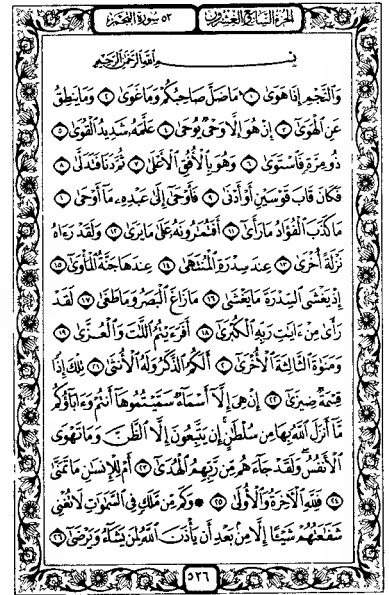 الجزء السابع والعشرون ٥٣ سورة النجم
بِسْمِ اللَّهِ الرَّحْمَٰنِ الرَّحِيمِ
وَالنَّجْمِ إِذَا هَوَىٰ ۝١ مَا ضَلَّ صَاحِبُكُمْ وَمَا غَوَىٰ ۝٢ وَمَا يَنطِقُ
عَنِ الْهَوَىٰ ۝٣ إِنْ هُوَ إِلَّا وَحْيٌ يُوحَىٰ ۝٤ عَلَّمَهُ شَدِيدُ الْقُوَىٰ ۝٥
ذُو مِرَّةٍ فَاسْتَوَىٰ ۝٦ وَهُوَ بِالْأُفُقِ الْأَعْلَىٰ ۝٧ ثُمَّ دَنَا فَتَدَلَّىٰ ۝٨
فَكَانَ قَابَ قَوْسَيْنِ أَوْ أَدْنَىٰ ۝٩ فَأَوْحَىٰ إِلَىٰ عَبْدِهِ مَا أَوْحَىٰ ۝١٠
مَا كَذَبَ الْفُؤَادُ مَا رَأَىٰ ۝١١ أَفَتُمَارُونَهُ عَلَىٰ مَا يَرَىٰ ۝١٢ وَلَقَدْ رَءَاهُ
نَزْلَةً أُخْرَىٰ ۝١٣ عِندَ سِدْرَةِ الْمُنتَهَىٰ ۝١٤ عِندَهَا جَنَّةُ الْمَأْوَىٰ ۝١٥
إِذْ يَغْشَى السِّدْرَةَ مَا يَغْشَىٰ ۝١٦ مَا زَاغَ الْبَصَرُ وَمَا طَغَىٰ ۝١٧ لَقَدْ
رَأَىٰ مِنْ ءَايَٰتِ رَبِّهِ الْكُبْرَىٰ ۝١٨ أَفَرَءَيْتُمُ اللَّٰتَ وَالْعُزَّىٰ ۝١٩
وَمَنَوٰةَ الثَّالِثَةَ الْأُخْرَىٰ ۝٢٠ أَلَكُمُ الذَّكَرُ وَلَهُ الْأُنثَىٰ ۝٢١ تِلْكَ إِذًا
قِسْمَةٌ ضِيزَىٰ ۝٢٢ إِنْ هِيَ إِلَّا أَسْمَاءٌ سَمَّيْتُمُوهَا أَنتُمْ وَءَابَاؤُكُم
مَّا أَنزَلَ اللَّهُ بِهَا مِن سُلْطَٰنٍ إِن يَتَّبِعُونَ إِلَّا الظَّنَّ وَمَا تَهْوَى
الْأَنفُسُ وَلَقَدْ جَاءَهُم مِّن رَّبِّهِمُ الْهُدَىٰ ۝٢٣ أَمْ لِلْإِنسَٰنِ مَا تَمَنَّىٰ
۝٢٤ فَلِلَّهِ الْآخِرَةُ وَالْأُولَىٰ ۝٢٥ ۞ وَكَم مِّن مَّلَكٍ فِي السَّمَٰوَٰتِ لَا تُغْنِي
شَفَٰعَتُهُمْ شَيْئًا إِلَّا مِن بَعْدِ أَن يَأْذَنَ اللَّهُ لِمَن يَشَاءُ وَيَرْضَىٰ ۝٢٦
٥٢٦